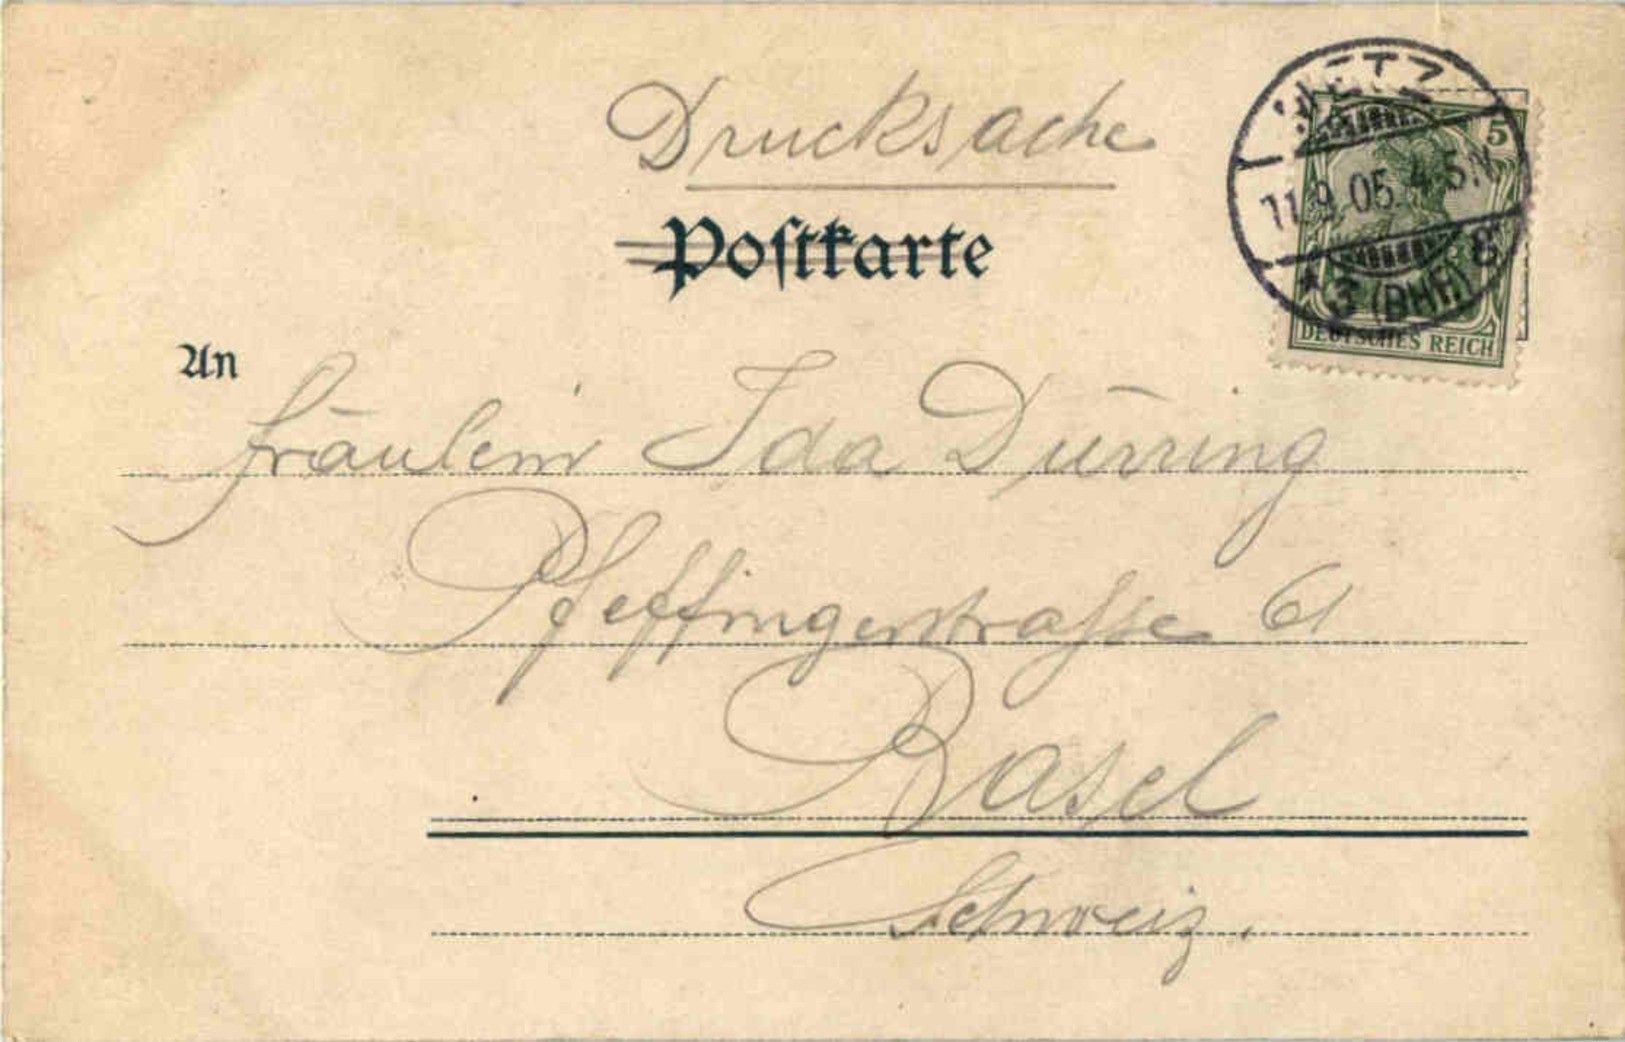 Drucksache
Poſtkarte
METZ
5
11.9.05.4-5.N.
* 3 (BHF.) g
DEUTSCHES REICH
An
Fräulein Ida Dürring
Pfeffingerstrasse 61
Basel
Schweiz.